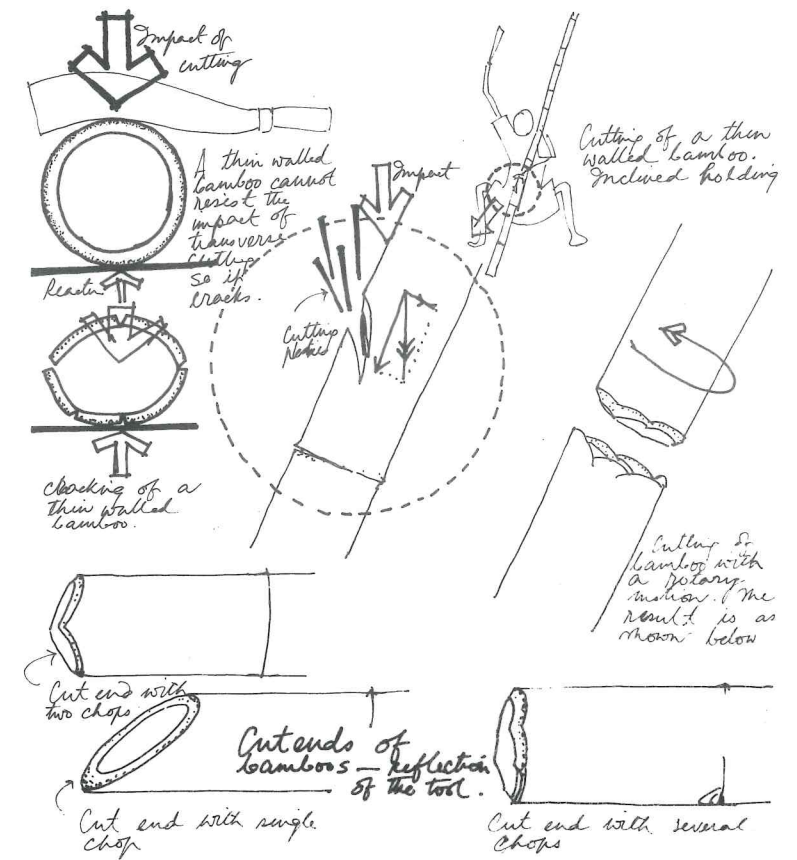 Impact of
cutting
A thin walled
bamboo cannot
resist the
impact of
transverse
cutting
so it
cracks.
Impact
Cutting of a thin
walled bamboo.
Inclined holding
Cutting
Cracking of a
thin walled
bamboo.
Cutting of
bamboo with
a rotary
motion. The
result is as
shown below
Cut end with
two chops
Cut ends of
bamboos — reflection
of the tool.
Cut end with single
chop
Cut end with several
chops